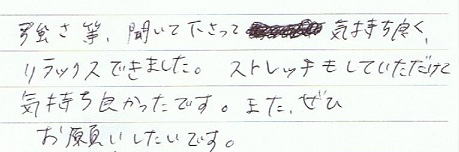 強さ等、聞いて下さって 気持ち良く、
リラックスできました。ストレッチもしていただけて
気持ち良かったです。また、ぜひ
お願いしたいです。